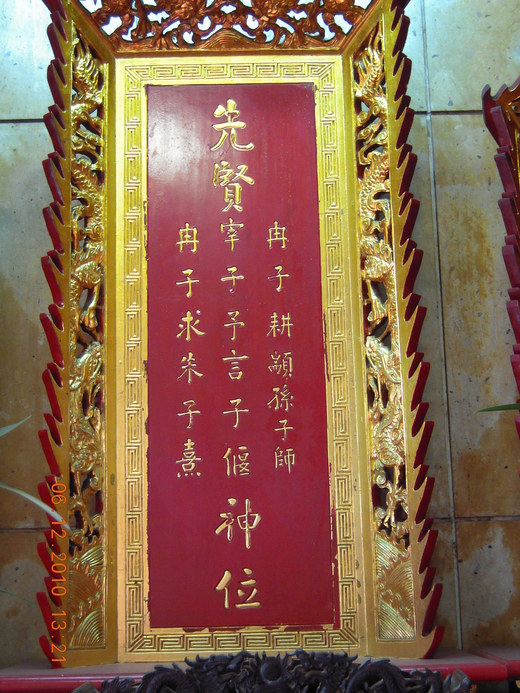 冉子耕顓孫子師
先賢宰子予言子偃神位
冉子求朱子熹
06.12.2010 13:21